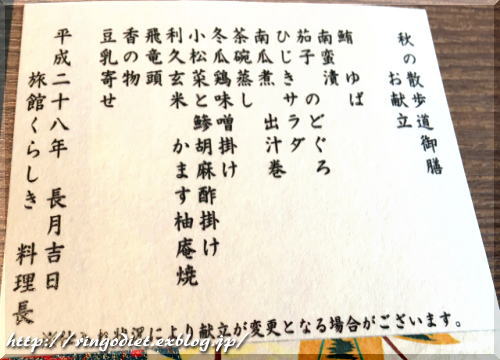 秋の散歩道御膳
お献立
鮪 ゆば
南蛮漬 のどぐろ
茄子
ひじきサラダ
南瓜煮 出汁巻
茶碗蒸し
冬瓜鶏味噌掛け
小松菜と鯵胡麻酢掛け
利久玄米 かます柚庵焼
飛竜頭
香の物
豆乳寄せ
平成二十八年 長月吉日
旅館くらしき 料理長
状況により献立が変更となる場合がございます。
http://ringodiet.exblog.jp/